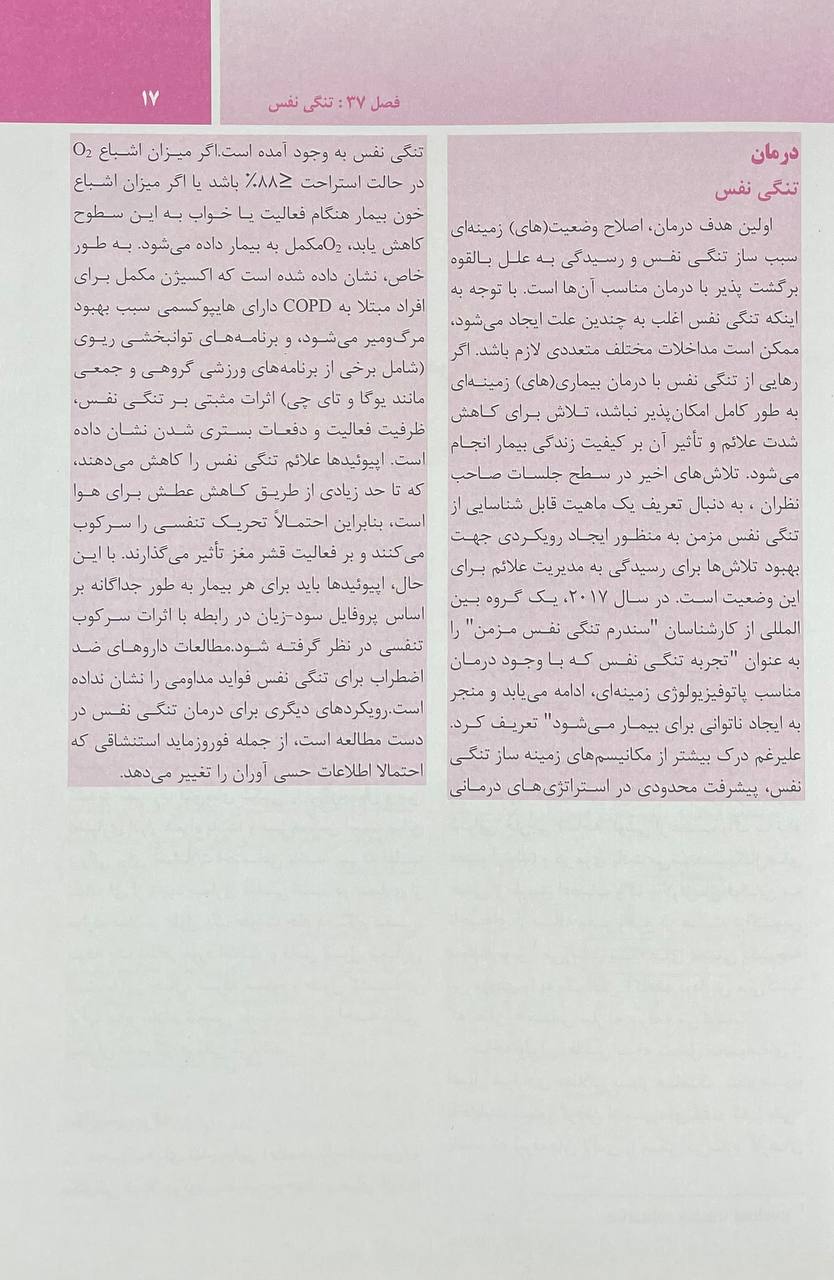 ۱۷
فصل ۳۷: تنگی نفس
درمان
تنگی نفس
اولین هدف درمان، اصلاح وضعیت(های) زمینه‌ای
سبب ساز تنگی نفس و رسیدگی به علل بالقوه
برگشت پذیر با درمان مناسب آن‌ها است. با توجه به
اینکه تنگی نفس اغلب به چندین علت ایجاد می‌شود،
ممکن است مداخلات مختلف متعددی لازم باشد. اگر
رهایی از تنگی نفس با درمان بیماری(های) زمینه‌ای
به طور کامل امکان‌پذیر نباشد، تلاش برای کاهش
شدت علائم و تأثیر آن بر کیفیت زندگی بیمار انجام
می‌شود. تلاش‌های اخیر در سطح جلسات صاحب
نظران ، به دنبال تعریف یک ماهیت قابل شناسایی از
تنگی نفس مزمن به منظور ایجاد رویکردی جهت
بهبود تلاش‌ها برای رسیدگی به مدیریت علائم برای
این وضعیت است. در سال ۲۰۱۷، یک گروه بین
المللی از کارشناسان "سندرم تنگی نفس مزمن" را
به عنوان "تجربه تنگی نفس که با وجود درمان
مناسب پاتوفیزیولوژی زمینه‌ای، ادامه می‌یابد و منجر
به ایجاد ناتوانی برای بیمار می‌شود" تعریف کرد.
علیرغم درک بیشتر از مکانیسم‌های زمینه ساز تنگی
نفس، پیشرفت محدودی در استراتژی‌های درمانی
تنگی نفس به وجود آمده است.اگر میزان اشباع O₂
در حالت استراحت ≤۸۸٪ باشد یا اگر میزان اشباع
خون بیمار هنگام فعالیت یا خواب به این سطوح
کاهش یابد، O₂مکمل به بیمار داده می‌شود. به طور
خاص، نشان داده شده است که اکسیژن مکمل برای
افراد مبتلا به COPD دارای هایپوکسمی سبب بهبود
مرگ‌ومیر می‌شود، و برنامه‌های توانبخشی ریوی
(شامل برخی از برنامه‌های ورزشی گروهی و جمعی
مانند یوگا و تای چی) اثرات مثبتی بر تنگی نفس،
ظرفیت فعالیت و دفعات بستری شدن نشان داده
است. اپیوئیدها علائم تنگی نفس را کاهش می‌دهند،
که تا حد زیادی از طریق کاهش عطش برای هوا
است، بنابراین احتمالاً تحریک تنفسی را سرکوب
می‌کنند و بر فعالیت قشر مغز تأثیر می‌گذارند. با این
حال، اپیوئیدها باید برای هر بیمار به طور جداگانه بر
اساس پروفایل سود-زیان در رابطه با اثرات سرکوب
تنفسی در نظر گرفته شود.مطالعات داروهای ضد
اضطراب برای تنگی نفس فواید مداومی را نشان نداده
است.رویکردهای دیگری برای درمان تنگی نفس در
دست مطالعه است، از جمله فوروزماید استنشاقی که
احتمالا اطلاعات حسی آوران را تغییر می‌دهد.